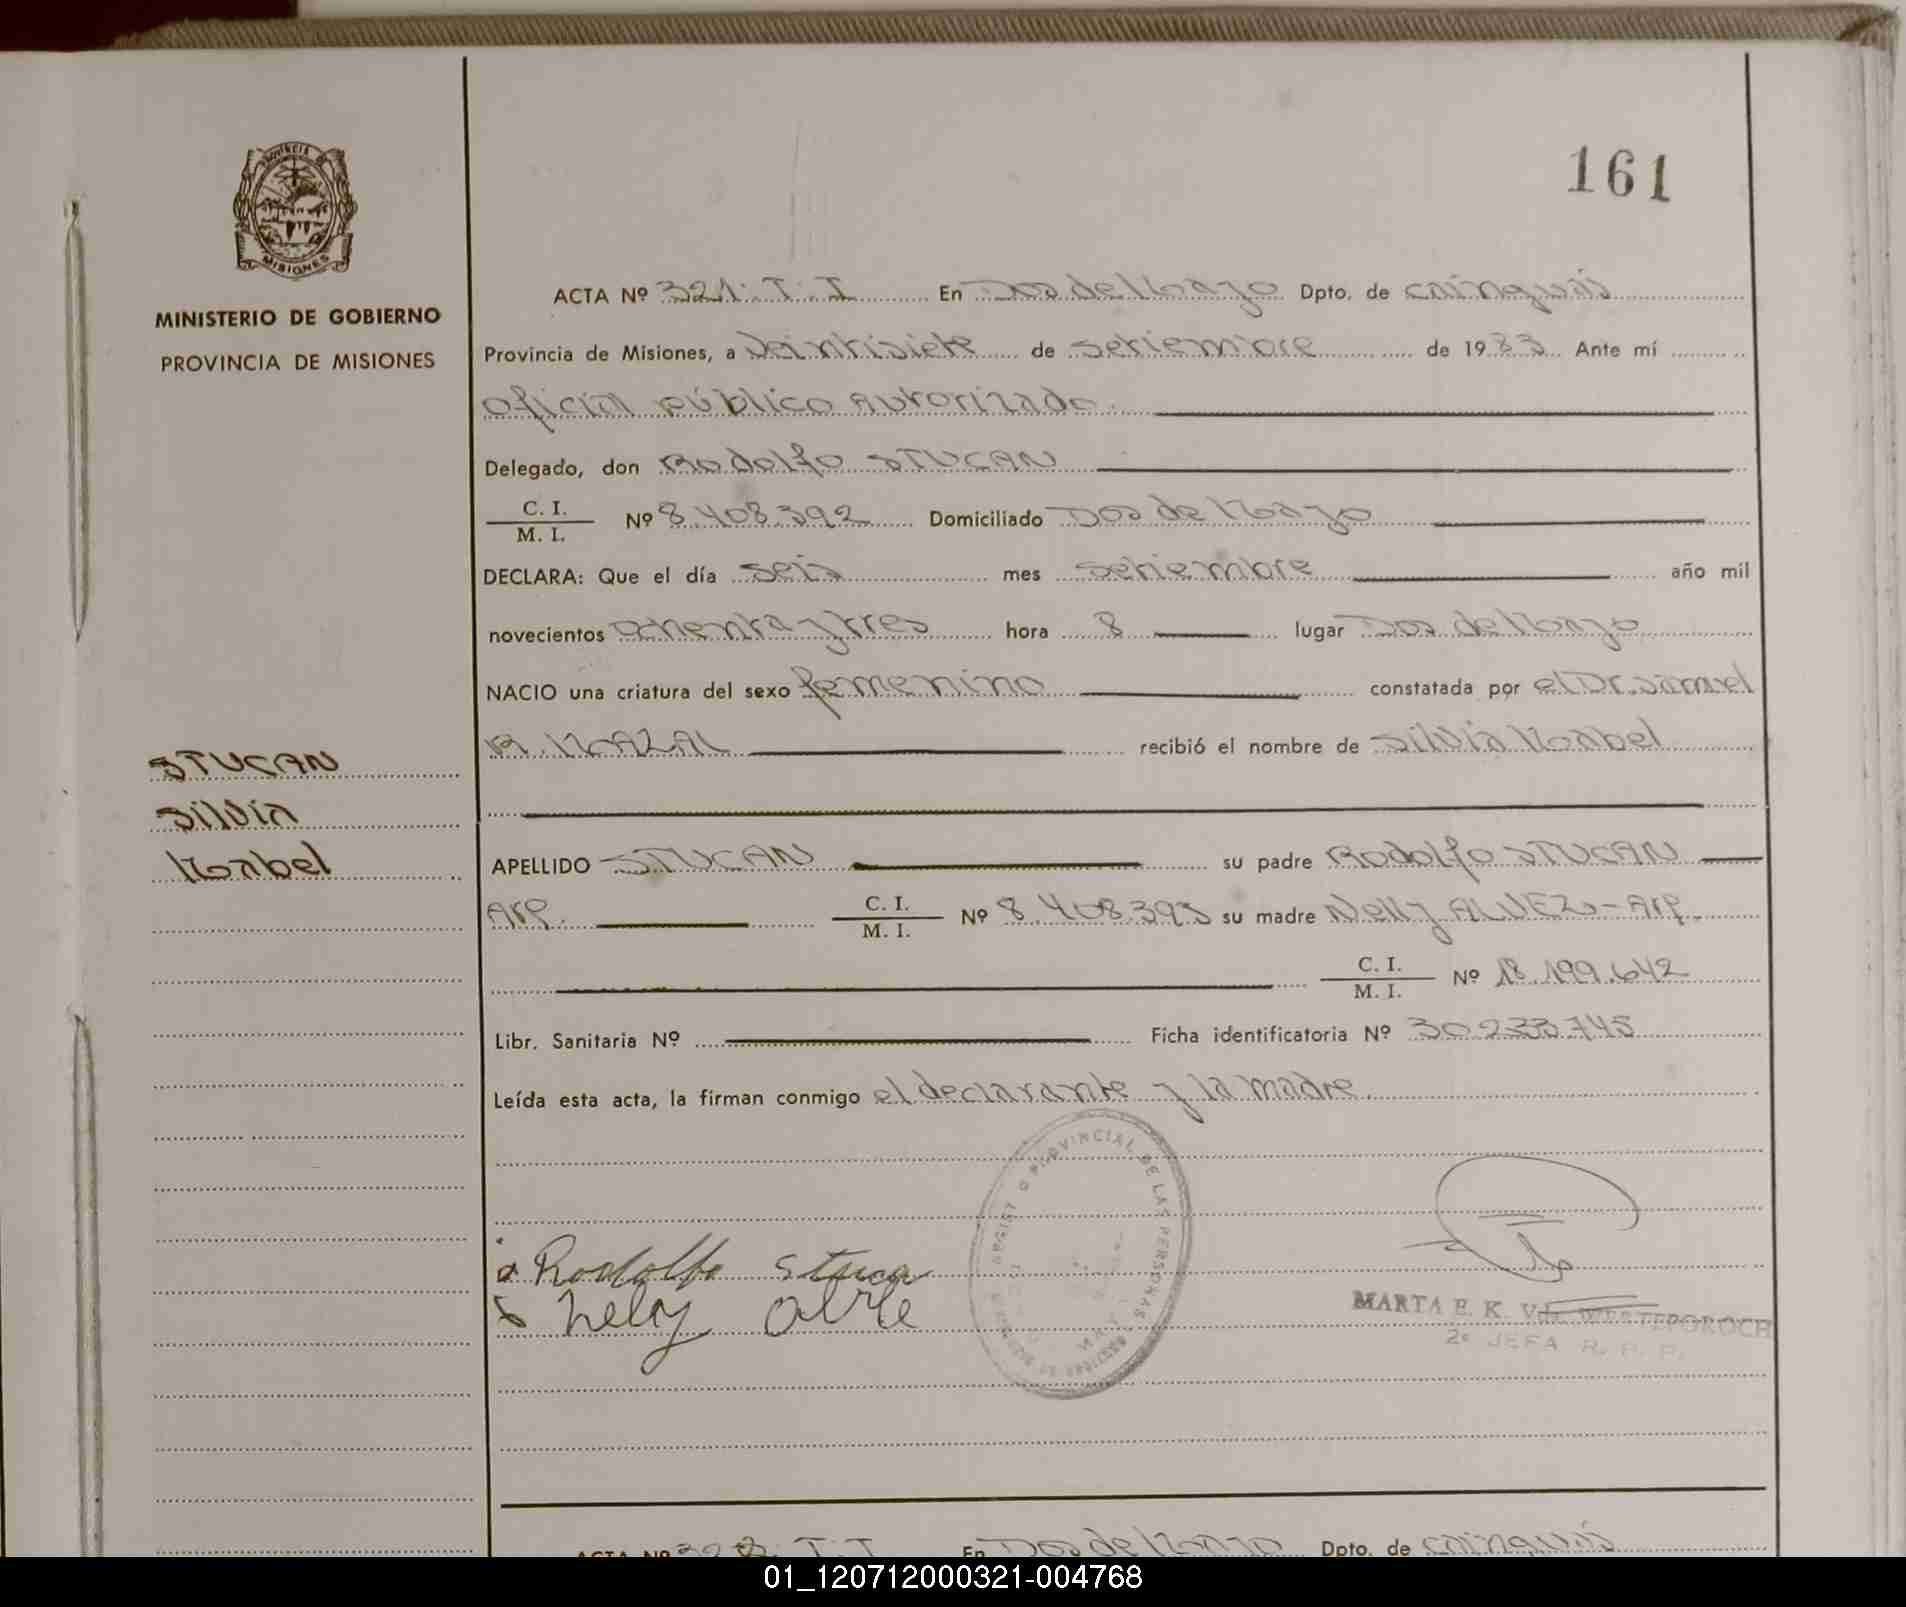 161
PROVINCIA DE
MISIONES
MINISTERIO DE GOBIERNO
PROVINCIA DE MISIONES
STUCAN
Silvia
Mabel
ACTA Nº 321. T. I En Dos de Mayo Dpto. de Cainguás
Provincia de Misiones, a veintisiete de setiembre de 1983 Ante mí
oficial público autorizado.
Delegado, don Rodolfo STUCAN
C. I.
M. I. Nº 8.408.392 Domiciliado Dos de Mayo
DECLARA: Que el día seis mes setiembre año mil
novecientos ochenta y tres hora 8 lugar Dos de Mayo
NACIO una criatura del sexo femenino constatada por el Dr. Samuel
R. MAZAL recibió el nombre de Silvia Mabel
APELLIDO STUCAN su padre Rodolfo STUCAN
Arg. C. I.
M. I. Nº 8.408.393 su madre Nelly ALVEZ - Arg.
C. I.
M. I. Nº 18.199.642
Libr. Sanitaria Nº Ficha identificatoria Nº 30.233.745
Leída esta acta, la firman conmigo el declarante y la madre.
PROVINCIAL DE LAS PERSONAS
Rodolfo
Nely
MARTA E. K. Vda.
2º JEFA R. P. P.
ACTA Nº 322 T. I En Dos de Mayo Dpto. de Cainguás
01_120712000321-004768